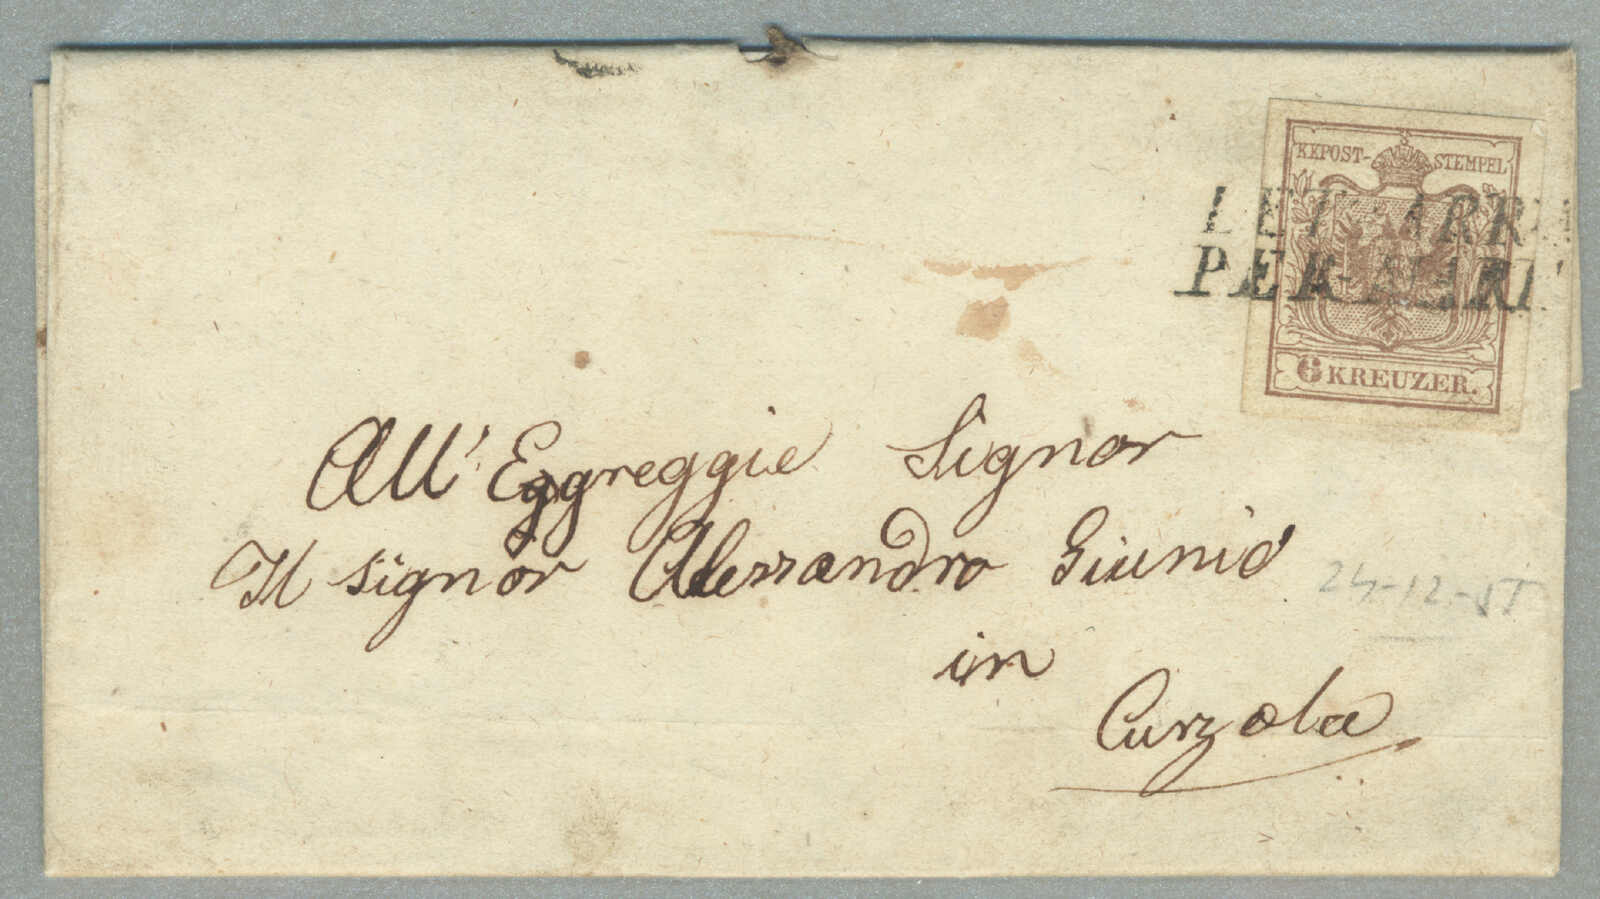 KKPOST-STEMPEL
LETT ARRI
PER MARE
6 KREUZER.
All' Eggreggie Signor
Il signor Alessandro Giunio
in
Curzola
24-12-